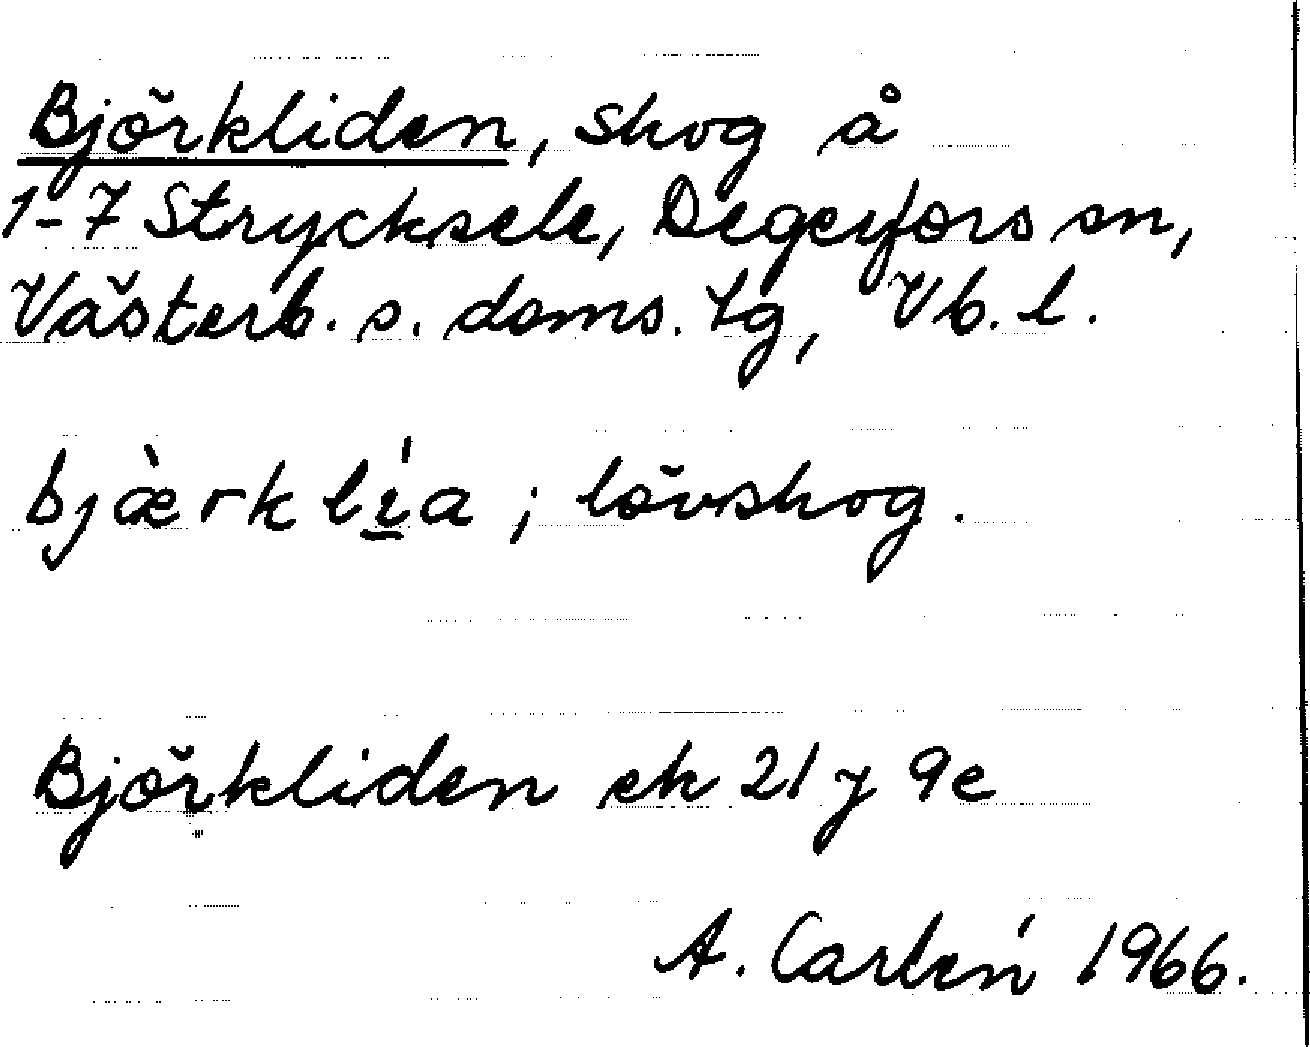 Björkliden, skog å
1-7 Strycksele, Degerfors sn,
Västerb. s. doms. tg, Vb. l.
bjæ̀rklı̱́a ; lövskog.
Björkliden ek 21 J 9e
A. Carlén 1966.